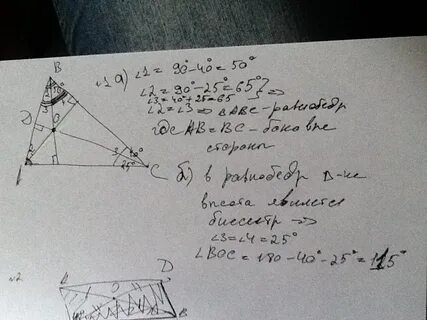 B
№1 а) ∠1 = 90°-40° = 50°
∠2 = 90°-25° = 65° }
∠3 = 40°+25 = 65 } ⇒
∠2 = ∠3 ⇒ ΔABC - равнобедр
где AB = BC - боковые
стороны
O
C
3 40°
25°
б) в равнобедр Δ-ке
высота является
биссектр ⇒
∠3 = ∠4 = 25°
∠BOC = 180 - 40° - 25° = 115°
№2
D
O
B